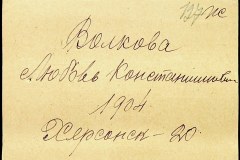 127ж
Волкова
Любовь Константиновн
1904
Херсонск - 20.